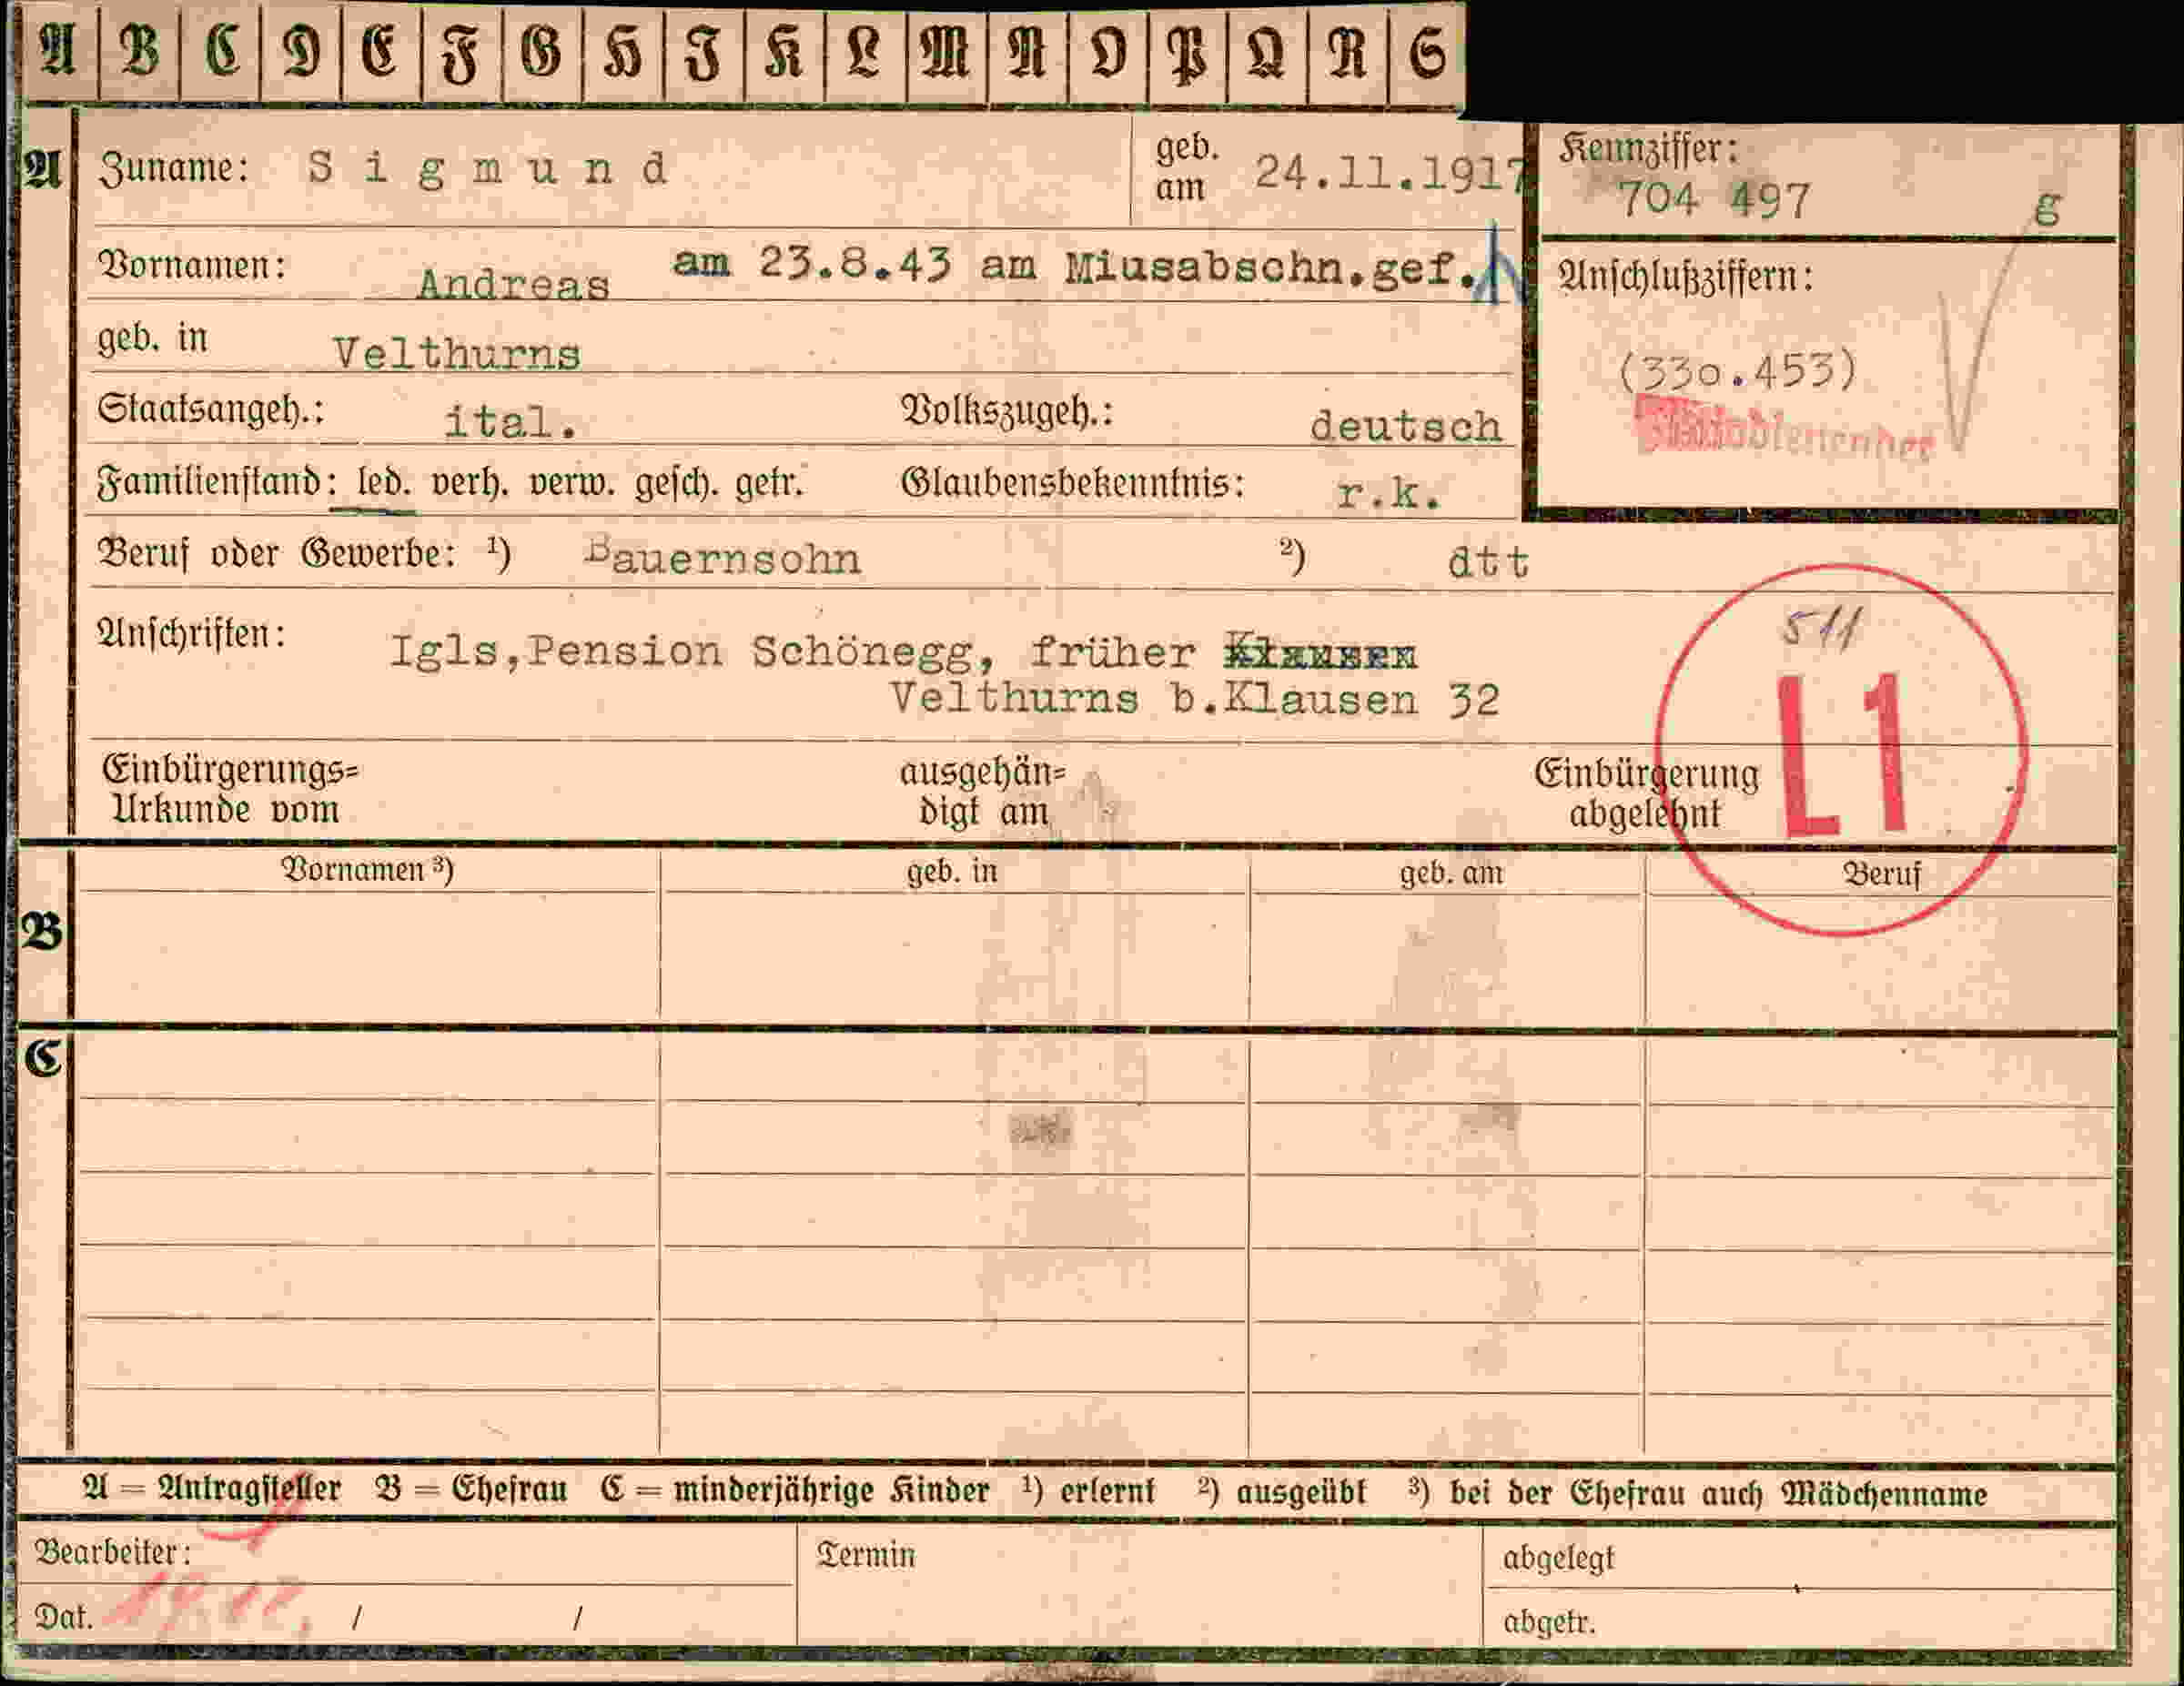 A B C D E F G H I K L M N O P Q R S
A Zuname: Sigmund geb. am 24.11.1917
Kennziffer: 704 497 g
Vornamen: Andreas am 23.8.43 am Miusabschn.gef.
Anschlußziffern:
(330.453)
geb. in Velthurns
Staatsangeh.: ital. Volkszugeh.: deutsch
Familienstand: led. verh. verw. gesch. getr. Glaubensbekenntnis: r.k.
Beruf oder Gewerbe: ¹) Bauernsohn ²) dtt
Anschriften: Igls,Pension Schönegg, früher Klausen
Velthurns b.Klausen 32
511
L1
Einbürgerungs= ausgehän= Einbürgerung
Urkunde vom digt am abgelehnt
Vornamen ³) geb. in geb. am Beruf
B
C
A = Antragsteller B = Ehefrau C = minderjährige Kinder ¹) erlernt ²) ausgeübt ³) bei der Ehefrau auch Mädchenname
Bearbeiter: Termin abgelegt
Dat. / / abgetr.